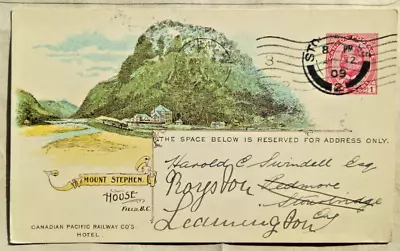 8 PM
09
2
1
THE SPACE BELOW IS RESERVED FOR ADDRESS ONLY.
Harold C. Swindell Esq
Royston Ledmore
Stourbridge
Leamington
Eng
MOUNT STEPHEN
HOUSE
FIELD, B.C.
CANADIAN PACIFIC RAILWAY CO'S
HOTEL.